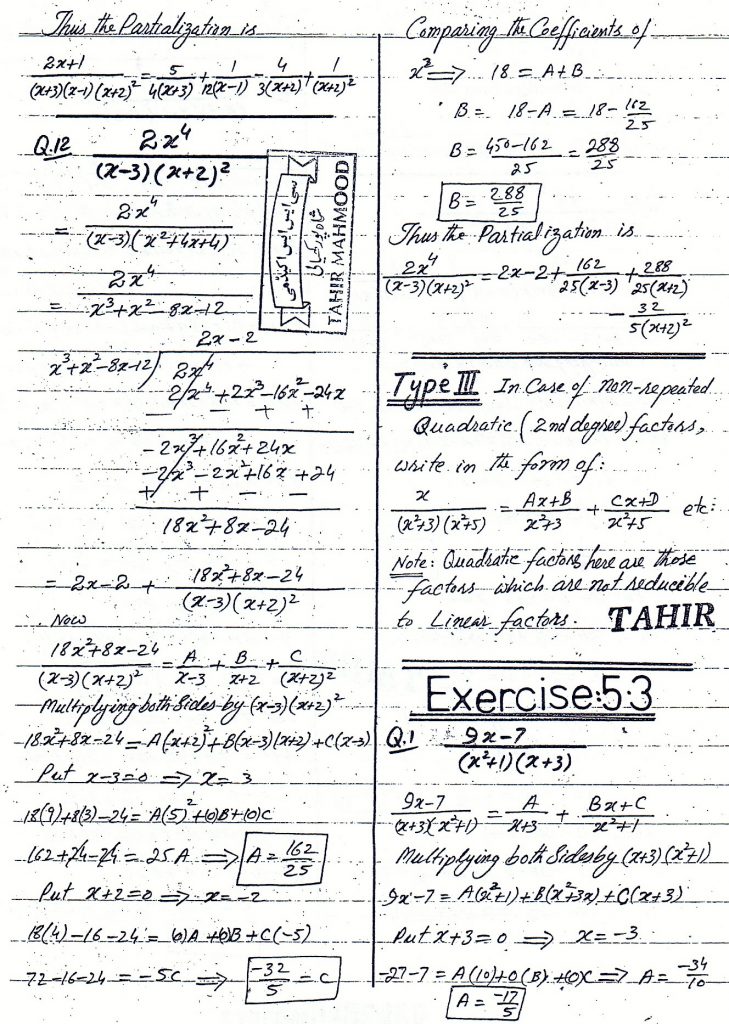 Thus the Partialization is
2x+1/((x+3)(x-1)(x+2)²) = 5/(4(x+3)) + 1/(12(x-1)) - 4/(3(x+2)) + 1/(x+2)²
Q.12 2x⁴/((x-3)(x+2)²)
= 2x⁴/((x-3)(x²+4x+4))
= 2x⁴/(x³+x²-8x-12)
2x-2
x³+x²-8x-12) 2x⁴
2x⁴+2x³-16x²-24x
- - + +
-2x³+16x²+24x
-2x³-2x²+16x+24
+ + - -
18x²+8x-24
= 2x-2 + (18x²+8x-24)/((x-3)(x+2)²)
Now
(18x²+8x-24)/((x-3)(x+2)²) = A/(x-3) + B/(x+2) + C/(x+2)²
Multiplying both Sides by (x-3)(x+2)²
18x²+8x-24 = A(x+2)²+B(x-3)(x+2)+C(x-3)
Put x-3=0 ⇒ x=3
18(9)+8(3)-24 = A(5)²+(0)B+(0)C
162+24-24 = 25A ⇒ A = 162/25
Put x+2=0 ⇒ x=-2
18(4)-16-24 = (0)A+(0)B+C(-5)
72-16-24 = -5C ⇒ -32/5 = C
سی ایس ایس اکیڈمی
TAHIR MAHMOOD
Comparing the Coefficients of
x² ⇒ 18 = A+B
B = 18-A = 18-162/25
B = (450-162)/25 = 288/25
B = 288/25
Thus the Partialization is
2x⁴/((x-3)(x+2)²) = 2x-2 + 162/(25(x-3)) + 288/(25(x+2))
- 32/(5(x+2)²)
Type III In Case of non-repeated
Quadratic (2nd degree) factors,
write in the form of:
x/((x²+3)(x²+5)) = (Ax+B)/(x²+3) + (Cx+D)/(x²+5) etc:
Note: Quadratic factors here are those
factors which are not reducible
to Linear factors. TAHIR
Exercise:5.3
Q.1 (9x-7)/((x²+1)(x+3))
(9x-7)/((x+3)(x²+1)) = A/(x+3) + (Bx+C)/(x²+1)
Multiplying both Sides by (x+3)(x²+1)
9x-7 = A(x²+1)+B(x²+3x)+C(x+3)
Put x+3=0 ⇒ x=-3
-27-7 = A(10)+0(B)+(0)C ⇒ A = -34/10
A = -17/5